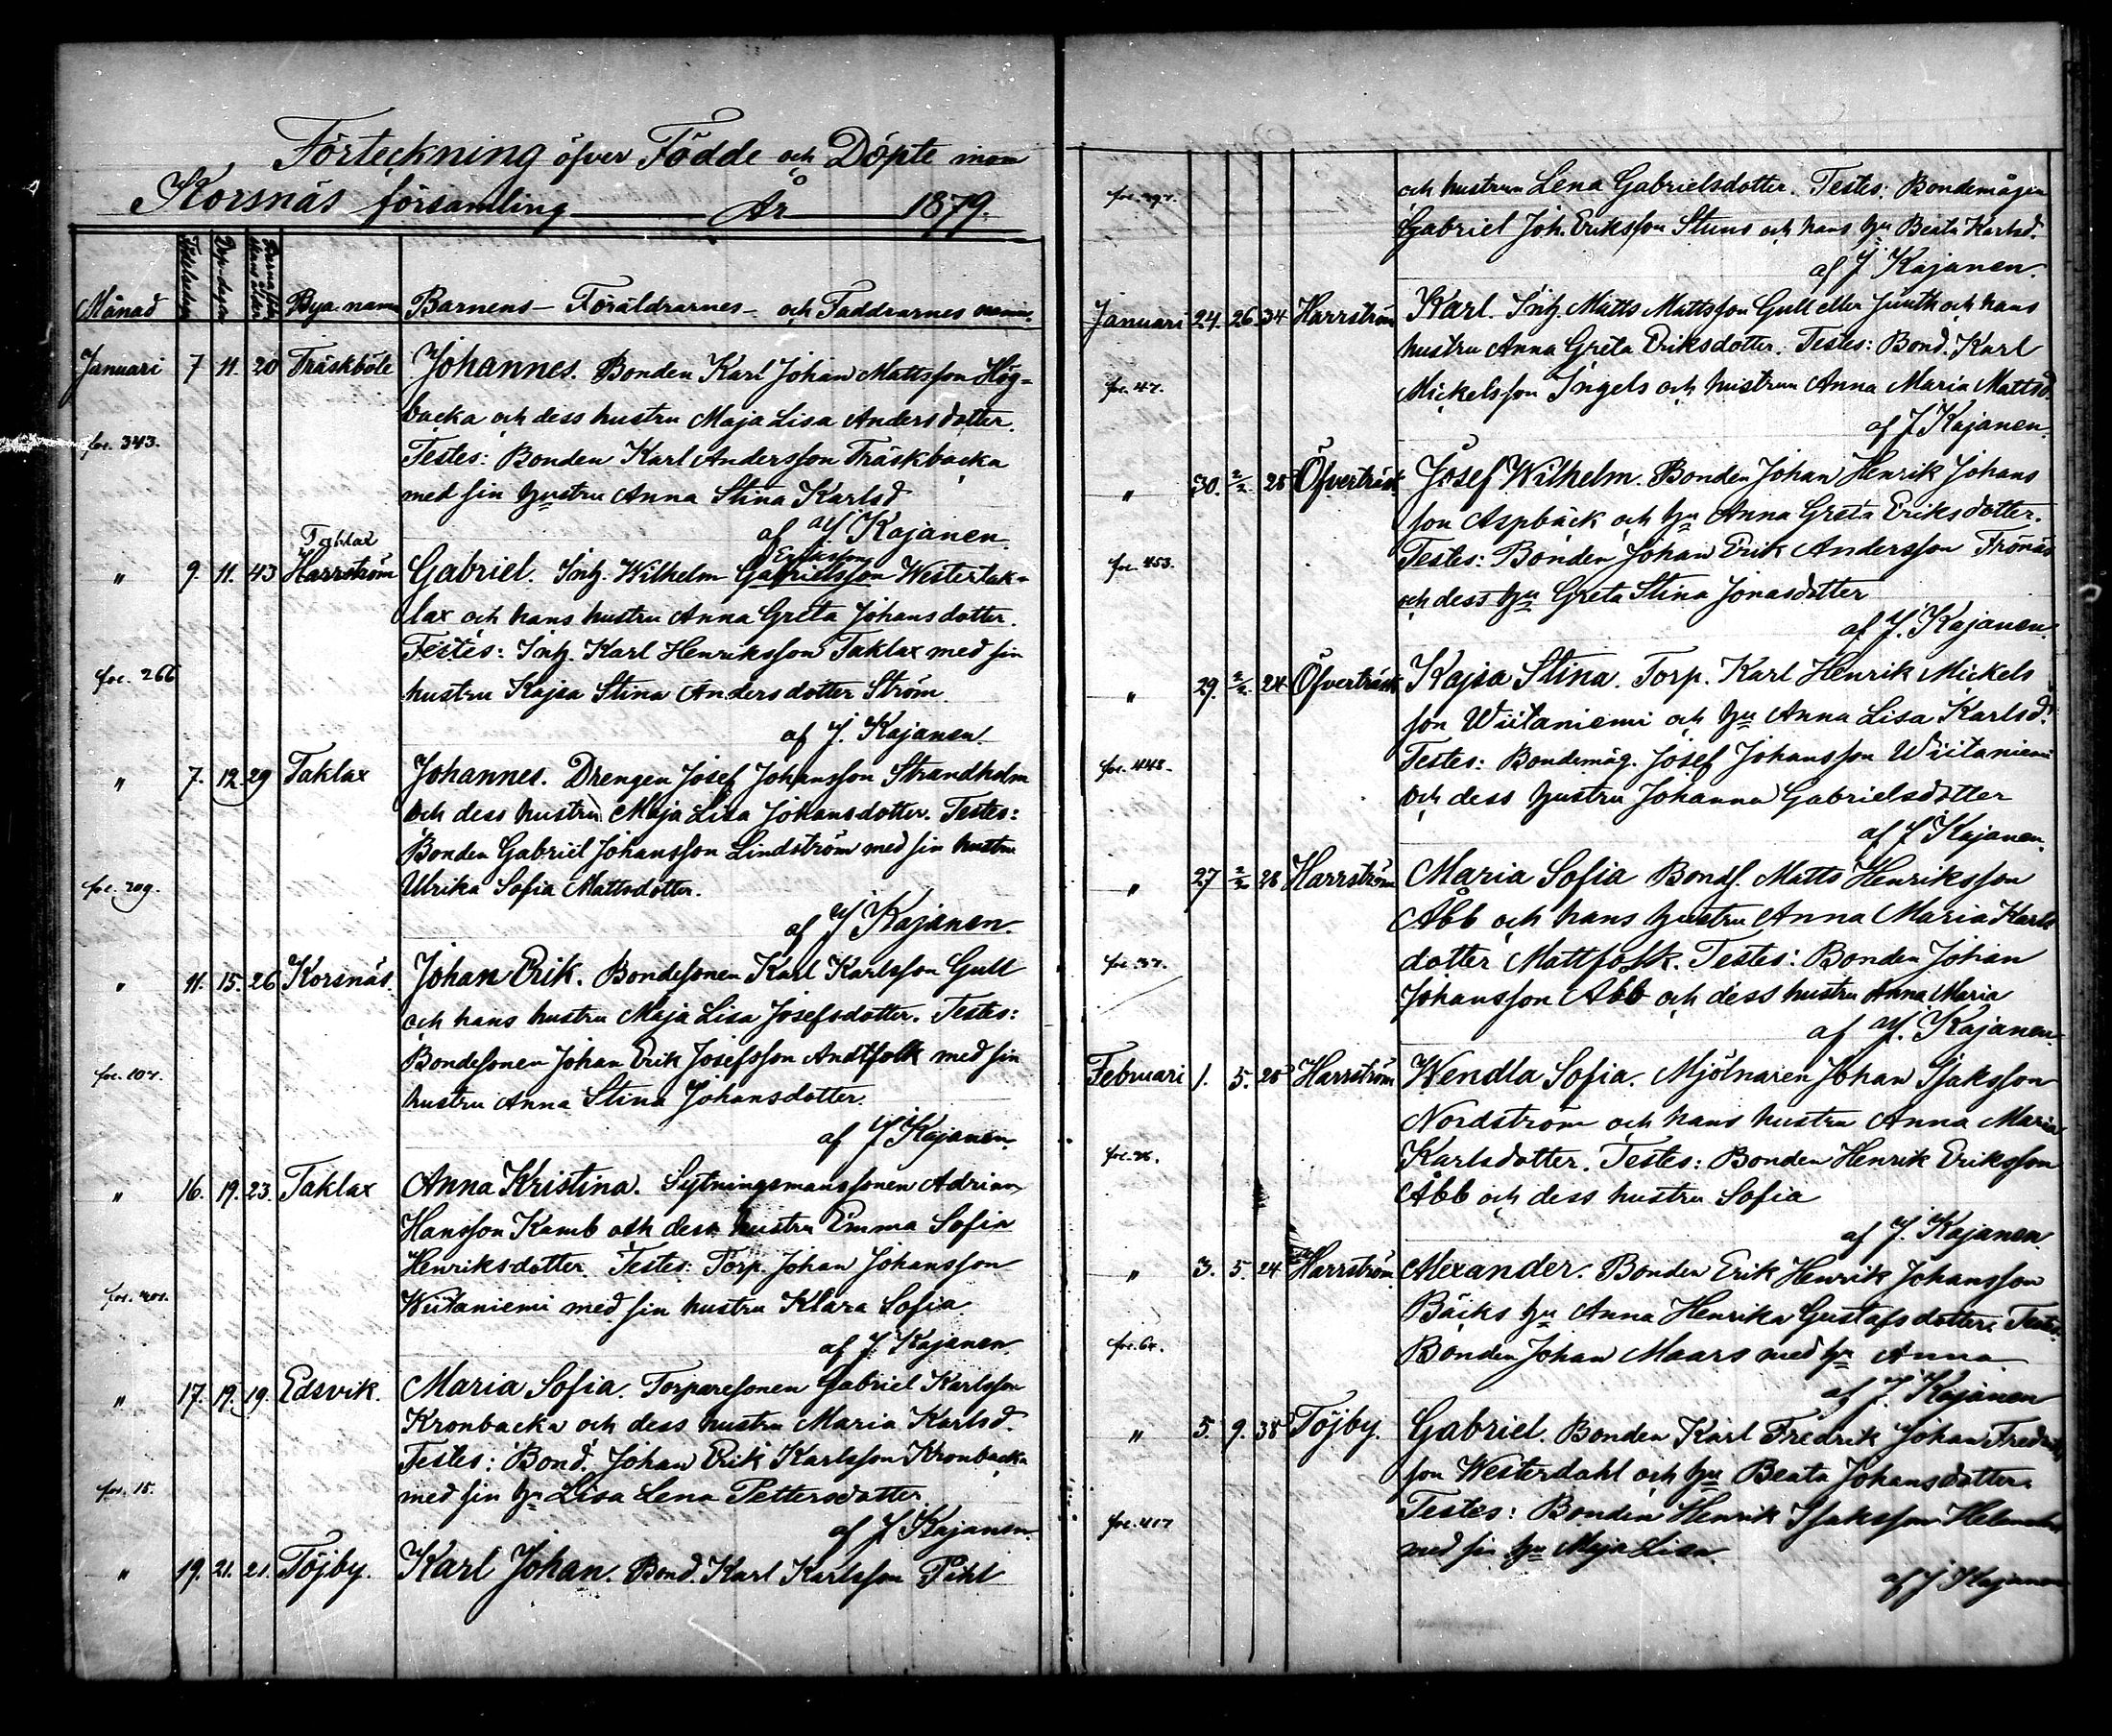 Förteckning öfver Födde och Döpte inom
Korsnäs församling År 1879.
Månad Födelsedagen Dop-dagen Bya-namn Barnens- Föräldrarnes- och Faddrarnes namn.
Januari 7 11 20 Träskböle Johannes. Bonden Karl Johan Mattsson Hög-
backa och dess hustru Maja Lisa Andersdotter.
fol. 343. Testes: Bonden Karl Andersson Träskbacka
med sin hustru Anna Stina Karlsd
af J. Kajanen
Taklax
" 9. 11. 43 Harrström Gabriel. Inh. Wilhelm Gabrielsson Eriksson Westertak-
lax och hans hustru Anna Greta Johansdotter.
Testes: Inh. Karl Henriksson Taklax med sin
fol. 266 hustru Kajsa Stina Andersdotter Ström.
af J. Kajanen.
" 7. 12. 29 Taklax Johannes. Drengen Josef Johansson Strandholm
och dess hustru Maja Lisa Johansdotter. Testes:
Bonden Gabriel Johansson Lindström med sin hustru
fol. 209. Ulrika Sofia Mattsdotter.
af J Kajanen.
" 11. 15. 26 Korsnäs. Johan Erik. Bondesonen Karl Karlsson Gull
och hans hustru Maja Lisa Josefsdotter. Testes:
Bondesonen Johan Erik Josefsson Andtfolk med sin
fol. 107. hustru Anna Stina Johansdotter.
af J Kajanen.
" 16. 19. 23. Taklax Anna Kristina. Sytningsmanssonen Adrian
Hansson Kamb och dess hustru Emma Sofia
Henriksdotter. Testes: Torp. Johan Johansson
Wiitaniemi med sin hustru Klara Sofia
af J Kajanen
" 17. 19. 19. Edsvik. Maria Sofia. Torparesonen Gabriel Karlsson
Kronbacka och dess hustru Maria Karlsd.
Testes: Bond. Johan Erik Karlsson Kronbacka
fol. 15. med sin hu Lisa Lena Pettersdotter
af J Kajanen
" 19. 21. 21. Töjby. Karl Johan. Bond. Karl Karlsson Pihl
och hustrun Lena Gabrielsdotter. Testes: Bondemågen
Gabriel Joh. Eriksson Stuns och hans hu Beata Karlsd.
af J Kajanen.
Januari 24. 26. 34 Harrström Karl. Inh. Matts Mattsson Gull eller Juuth och hans
hustru Anna Greta Eriksdotter. Testes: Bond. Karl
fol. 47. Mickelsson Ingels och hustrun Anna Maria Mattsd.
af J Kajanen.
" 30. 2/2. 28 Öfverträsk Josef Wilhelm. Bonden Johan Henrik Johans
son Aspbäck och hu Anna Greta Eriksdotter.
fol. 453. Testes: Bonden Johan Erik Andersson Frönäs
och dess hu Greta Stina Jonasdotter
af J. Kajanen.
" 29. 2/2. 24 Öfverträsk Kajsa Stina. Torp. Karl Henrik Mickels
son Wiitaniemi och hu Anna Lisa Karlsd.
fol. 448. Testes: Bondemåg. Josef Johansson Wiitaniemi
och dess hustru Johanna Gabrielsdotter
af J Kajanen.
" 27 2/2 28 Harrström Maria Sofia Bonds. Matts Henriksson
Åbb och hans hustru Anna Maria Karls
fol. 37. dotter Mattfolk. Testes: Bonden Johan
Johansson Åbb och dess hustru Anna Maria
af J. Kajanen.
Februari 1. 5. 28 Harrström Wendla Sofia. Mjölnaren Johan Isaksson
Nordström och hans hustru Anna Maria
Karlsdotter. Testes: Bonden Henrik Eriksson
Åbb och dess hustru Sofia
af J. Kajanen.
" 3. 5. 24 Harrström Alexander. Bonden Erik Henrik Johansson
Bäcks hu Anna Henrika Gustafsdotter. Testes.
fol. 64. Bonden Johan Maars med hu Anna
af J. Kajanen
" 5. 9. 38 Töjby. Gabriel. Bonden Karl Fredrik Johan Fredriks
son Westerdahl och hu Beata Johansdotter.
fol. 417 Testes: Bonden Henrik Isaksson
med sin hu Maja Lisa.
af J Kajanen